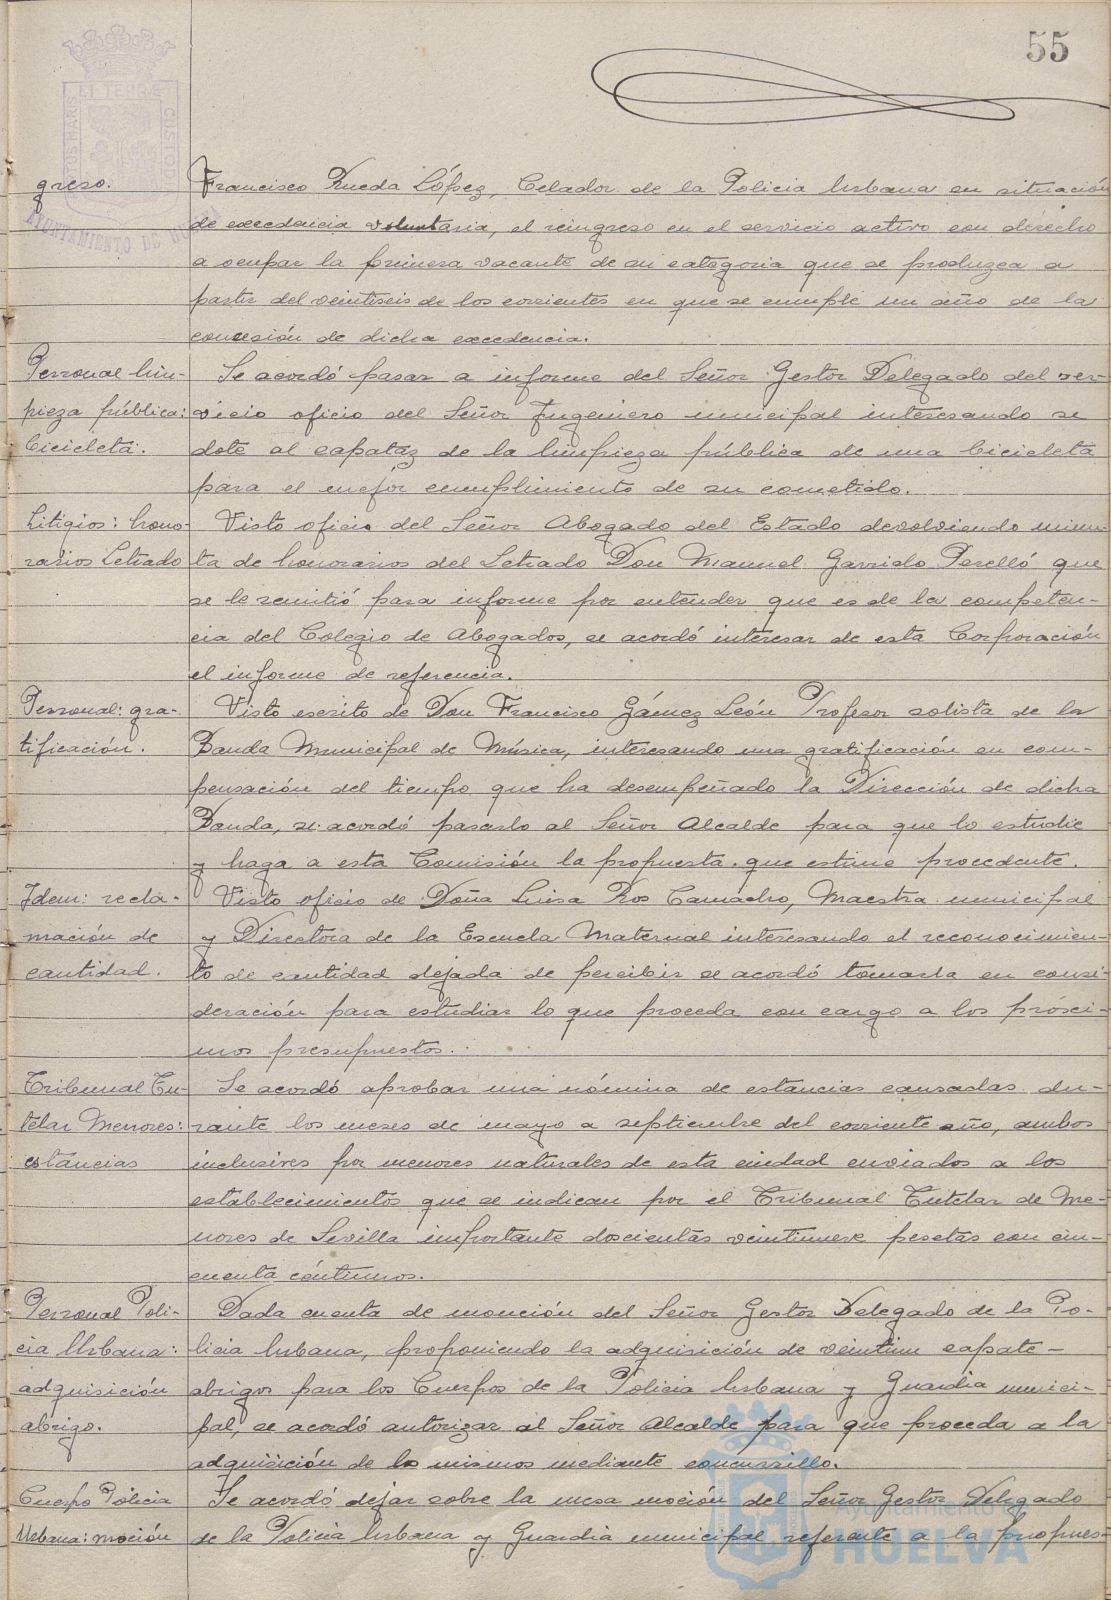 55
PORTUS MARIS ET TERRÆ CUSTOD
AYUNTAMIENTO DE HUELVA
greso.
Francisco Rueda López, Celador de la Policia Urbana en situación
de excedencia voluntaria, el reingreso en el servicio activo con derecho
a ocupar la primera vacante de su categoria que se produzca a
partir del veintiseis de los corrientes en que se cumple un año de la
concesión de dicha excedencia.
Personal lim-
pieza pública:
bicicleta.
Se acordó pasar a informe del Señor Gestor Delegado del ser-
vicio oficio del Señor Ingeniero municipal interesando se
dote al capataz de la limpieza pública de una bicicleta
para el mejor cumplimiento de su cometido.
Litigios: hono-
rarios Letrado
Visto oficio del Señor Abogado del Estado devolviendo minu-
ta de honorarios del Letrado Don Manuel Garrido Perelló que
se le remitió para informe por entender que es de la competen-
cia del Colegio de Abogados, se acordó interesar de esta Corporación
el informe de referencia.
Personal: gra-
tificación.
Visto escrito de Don Francisco Gámez León Profesor solista de la
Banda Municipal de Música, interesando una gratificación en com-
pensación del tiempo que ha desempeñado la Dirección de dicha
Banda, se acordó pasarlo al Señor Alcalde para que lo estudie
y haga a esta Comisión la propuesta que estime procedente.
Idem: recla-
mación de
cantidad.
Visto oficio de Doña Luisa Ros Camacho, Maestra municipal
y Directora de la Escuela Maternal interesando el reconocimien-
to de cantidad dejada de percibir se acordó tomarla en consi-
deración para estudiar lo que proceda con cargo a los próxi-
mos presupuestos.
Tribunal Tu-
telar Menores:
estancias
Se acordó aprobar una nómina de estancias causadas du-
rante los meses de mayo a septiembre del corriente año, ambos
inclusives por menores naturales de esta ciudad enviados a los
establecimientos que se indican por el Tribunal Tutelar de Me-
nores de Sevilla importante doscientas veintinueve pesetas con cin-
cuenta céntimos.
Personal Poli-
cia Urbana:
adquisición
abrigo.
Dada cuenta de moción del Señor Gestor Delegado de la Po-
licia Urbana, proponiendo la adquisición de veintiun capote-
abrigos para los Cuerpos de la Policia Urbana y Guardia munici-
pal, se acordó autorizar al Señor Alcalde para que proceda a la
adquisición de los mismos mediante concursillo.
Cuerpo Policia
Urbana: moción
Se acordó dejar sobre la mesa moción del Señor Gestor Delegado
de la Policia Urbana y Guardia municipal referente a la propues-
Ayuntamiento de
HUELVA